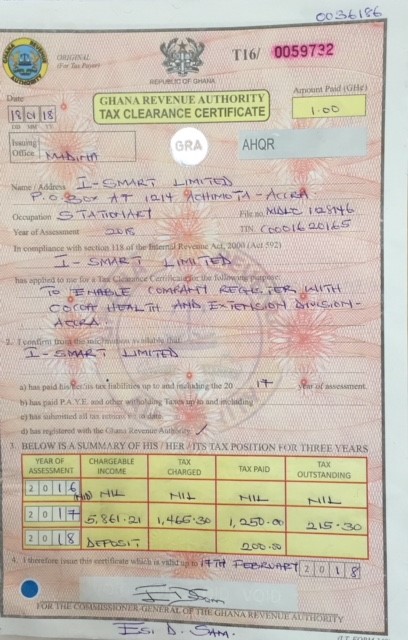 0036186
GHANA REVENUE AUTHORITY
ORIGINAL
(For Tax Payer)
REPUBLIC OF GHANA
T16/ 0059732
Date
18 01 18
DD MM YY
GHANA REVENUE AUTHORITY
TAX CLEARANCE CERTIFICATE
Amount Paid (GH¢)
1.00
Issuing
Office MADINA
GRA
AHQR
Name / Address I-SMART LIMITED
P.O. BOX AT 1214 ACHIMOTA - ACCRA.
Occupation STATIONARY File no.
Year of Assessment 2018 TIN C0001620165
In compliance with section 118 of the Internal Revenue Act, 2000 (Act 592)
I-SMART LIMITED
has applied to me for a Tax Clearance Certificate for the following purpose:
TO ENABLE COMPANY REGISTER WITH
COCOA HEALTH AND EXTENSION DIVISION-
ACCRA.
2. I confirm from the information available that
I-SMART LIMITED
a) has paid his/her/its tax liabilities up to and including the 20 17 year of assessment.
b) has paid P.A.Y.E. and other withholding Taxes up to and including
c) has submitted all tax returns to date
d) has registered with the Ghana Revenue Authority
3. BELOW IS A SUMMARY OF HIS / HER / ITS TAX POSITION FOR THREE YEARS
YEAR OF ASSESSMENT CHARGEABLE INCOME TAX CHARGED TAX PAID TAX OUTSTANDING
2016 NIL NIL NIL NIL
2017 5,861.21 1,465.30 1,250.00 215.30
2018 DEPOSIT 200.00
4. I therefore issue this certificate which is valid up to 17TH FEBRUARY 2018
FOR THE COMMISSIONER-GENERAL OF THE GHANA REVENUE AUTHORITY
ESI D. SAM.